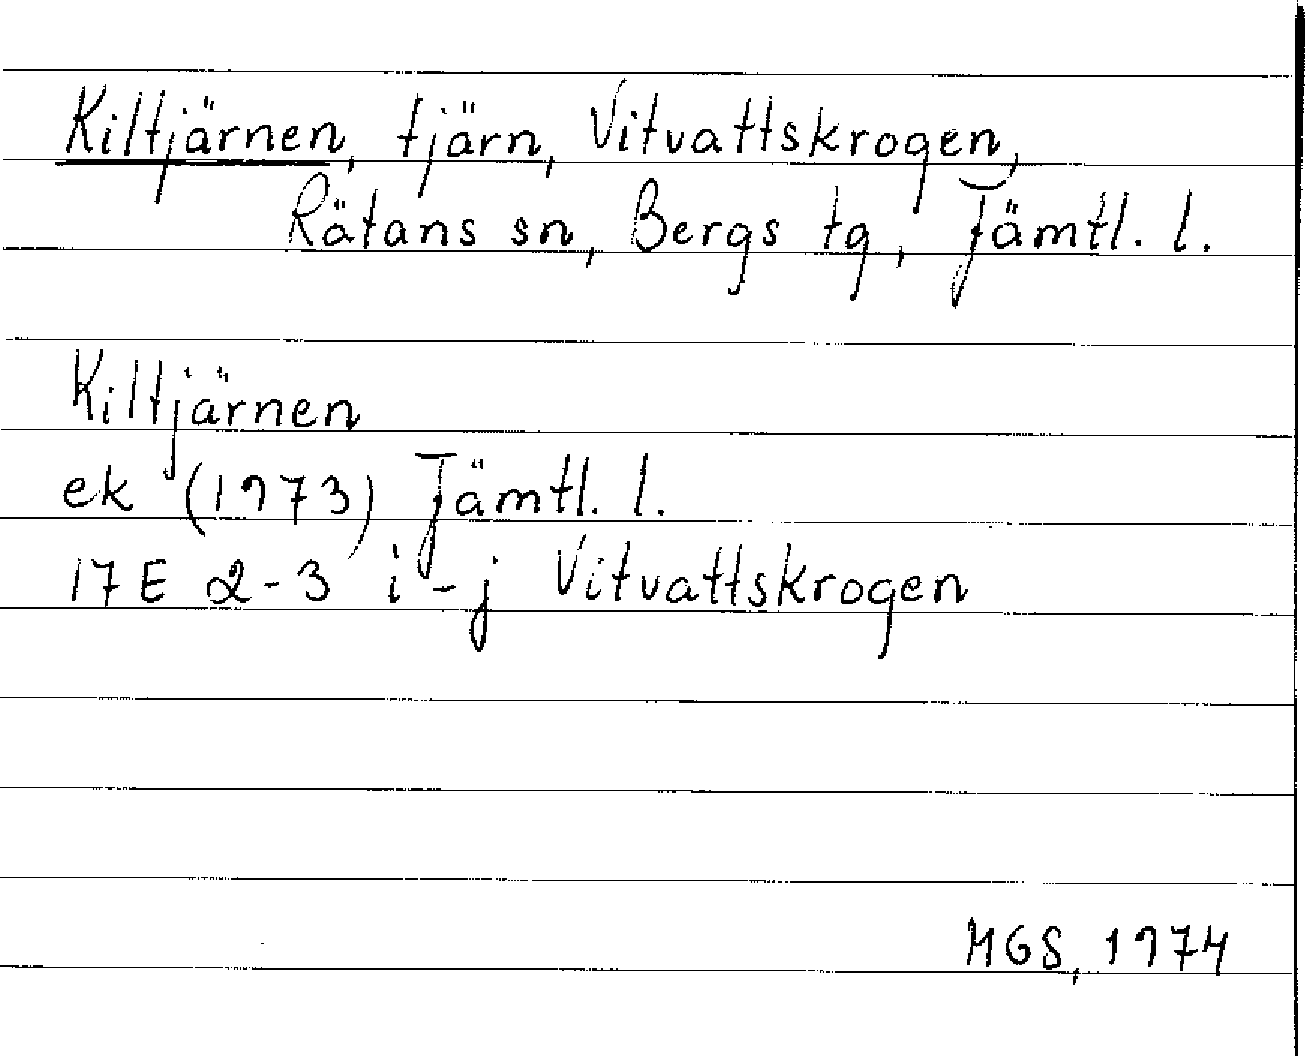 Kiltjärnen, tjärn, Vitvattskrogen,
Rätans sn, Bergs tg, Jämtl. l.
Kiltjärnen
ek (1973) Jämtl. l.
17E 2-3 i-j Vitvattskrogen
MGS, 1974